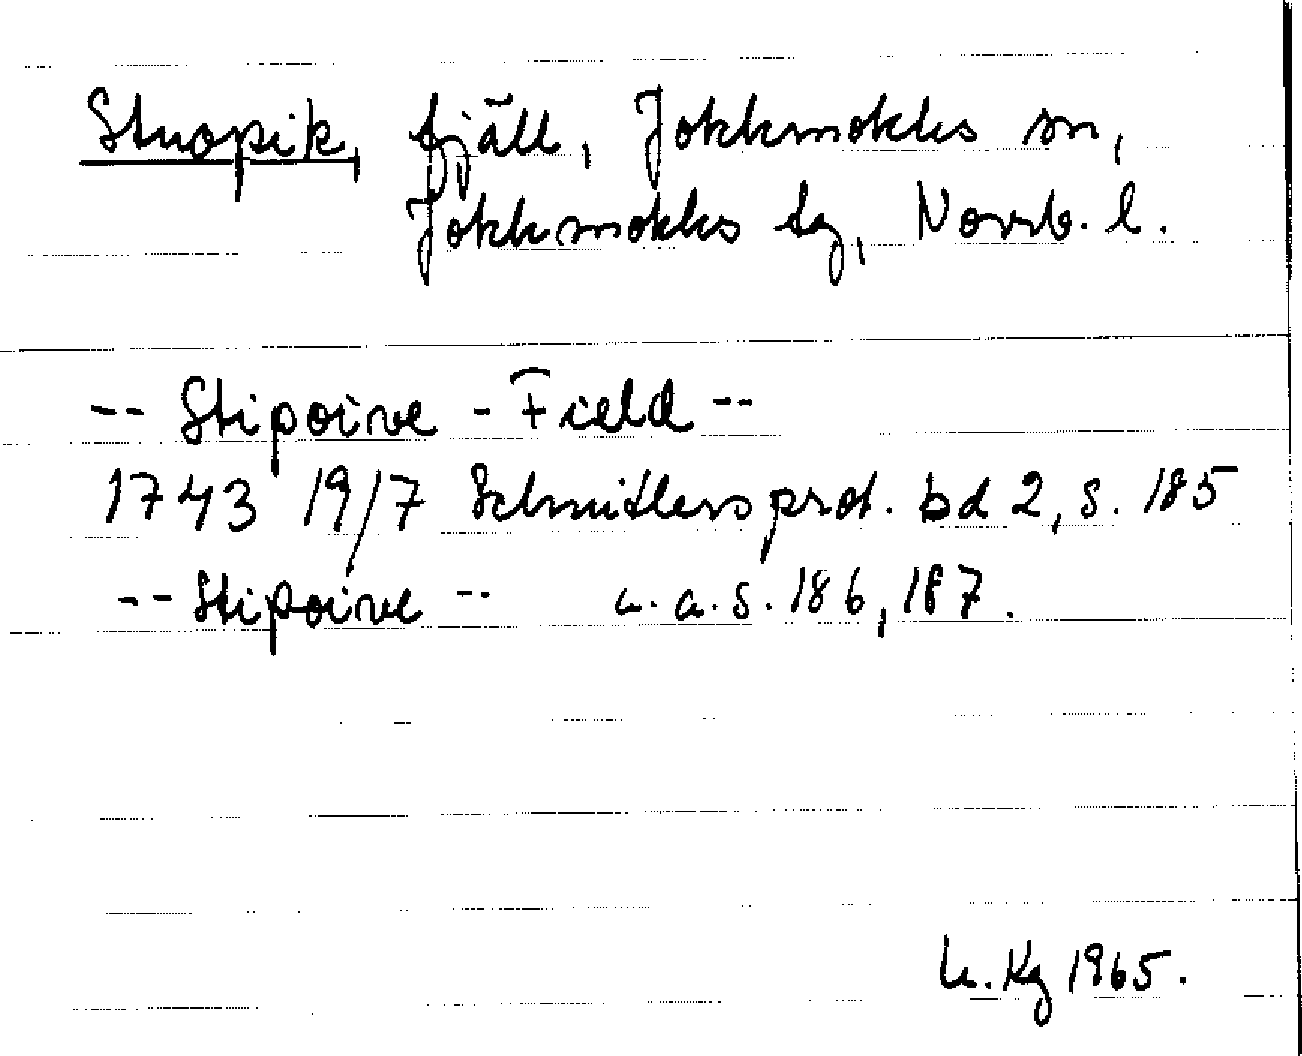 Stuopik, fjäll, Jokkmokks sn,
Jokkmokks tg, Norrb. l.
-- Stipoive - Field --
1743 19/7 Schnitlers prot. bd 2, s. 185
-- Stipoive -- a. a. s. 186, 187.
Kg 1965.